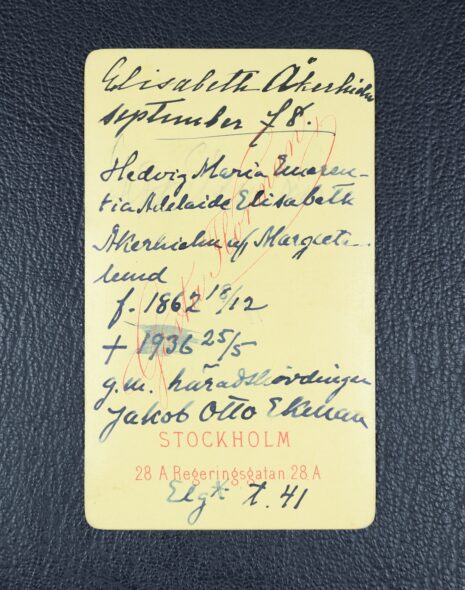 Elisabeth Åkerhielm
september 78.
Hedvig Maria Emeren-
tia Adelaide Elisabeth
Åkerhielm af Margreta-
lund
f. 1862 18/12
+ 1936 25/5
g.m. häradshövdingen
Jakob Otto Ekman
Gösta Florman
STOCKHOLM
28 A Regeringsgatan 28 A
Elg* t. 41